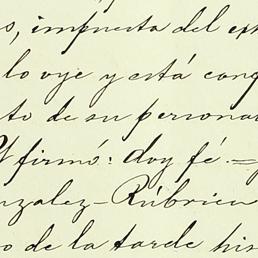 s, impuesta del ex
lo oye y está con
to de su persona
Y firmó: doy fé.=
nzalez-Rúbrica
o de la tarde his